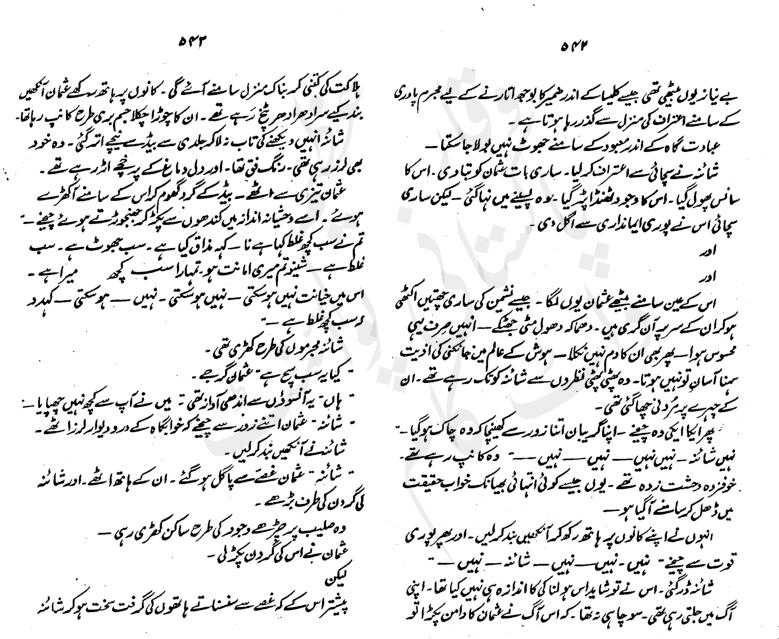 ۵۴۲
بے نیاز یوں بیٹھی تھی جیسے کلیسا کے اندر ضمیر کا بوجھ اتارنے کے لیے مجرم پادری
کے سامنے اعتراف کی منزل سے گذر رہا ہوتا ہے۔
عبادت گاہ کے اندر معبود کے سامنے جھوٹ نہیں بولا جا سکتا۔
شائنہ نے سچائی سے اعتراف کر لیا۔ ساری بات عثمان کو بتا دی۔ اس کا
سانس پھول گیا۔ اس کا وجود ٹھنڈا پڑ گیا۔ وہ پسینے میں نہا گئی۔ لیکن ساری
سچائی اس نے پوری ایمانداری سے اگل دی۔
اور
اور
اس کے عین سامنے بیٹھے عثمان یوں لگا۔ جیسے نشیمن کی ساری چھتیں اکٹھی
ہو کر ان کے سر پر آن گری ہیں۔ دھماکہ دھول مٹی جھٹکے — انہیں صرف یہی
محسوس ہوا — پھر بھی ان کا دم نہیں نکلا۔ ہوش کے عالم میں جانکنی کی اذیت
سہنا آسان تو نہیں ہوتا۔ وہ پھٹی پھٹی نظروں سے شائنہ کو تک رہے تھے۔ ان
کے چہرے پر مُردنی چھا گئی تھی۔
پھر ایکا ایکی وہ چیخے۔ اپنا گریبان اتنا زور سے کھینچا کہ وہ چاک ہو گیا۔ "
نہیں شائنہ۔ نہیں نہیں — نہیں — نہیں —" وہ کانپ رہے تھے۔
خوفزدہ دہشت زدہ تھے۔ یوں جیسے کوئی انتہائی بھیانک خواب حقیقت
میں ڈھل کر سامنے آ گیا ہو —
انہوں نے اپنے کانوں پر ہاتھ رکھ کر آنکھیں بند کر لیں۔ اور پھر پوری
قوت سے چیخے "نہیں۔ نہیں — نہیں — شائنہ — نہیں —"
شائنہ ڈر گئی۔ اس نے تو شاید اس ہولناکی کا اندازہ ہی نہیں کیا تھا۔ اپنی
آگ میں جلتی رہی تھی۔ سوچا ہی نہ تھا۔ کہ اس آگ نے عثمان کا دامن پکڑا تو
۵۴۳
ہلاکت کی کتنی کربناک منزل سامنے آئے گی۔ کانوں پر ہاتھ رکھے عثمان آنکھیں
بند کیے سر ادھر ادھر پٹخ رہے تھے۔ ان کا چوڑا چکلا جسم بری طرح کانپ رہا تھا۔
شائنہ انہیں دیکھنے کی تاب نہ لا کر جلدی سے بیڈ سے نیچے اتر گئی۔ وہ خود
بھی لرز رہی تھی۔ رنگ فق تھا۔ اور دل دماغ کے پرخچے اڑ رہے تھے۔
عثمان تیزی سے اٹھے۔ بیڈ کے گرد گھوم کر اس کے سامنے آ کھڑے
ہوئے۔ اسے وحشیانہ انداز میں کندھوں سے پکڑ کر جھنجوڑتے ہوئے چیخے — "
تم نے سب کچھ غلط کہا ہے نا۔ کہہ مذاق کیا ہے۔ سب جھوٹ ہے۔ سب
غلط ہے — شینو تم میری امانت ہو۔ تمہارا سب کچھ میرا ہے۔
اس میں خیانت نہیں ہو سکتی — نہیں ہو سکتی۔ نہیں — ہو سکتی — کہہ دو
سب کچھ غلط ہے —"
شائنہ مجرموں کی طرح کھڑی تھی۔
"کیا یہ سب سچ ہے" عثمان گرجے۔
"ہاں" یہ آنسوؤں سے اندھی آواز تھی "میں نے آپ سے کچھ نہیں چھپایا —
"شائنہ" عثمان اتنے زور سے چیخے کہ خوابگاہ کے در و دیوار لرز اٹھے۔
شائنہ نے آنکھیں بند کر لیں۔
"شائنہ" عثمان غصے سے پاگل ہو گئے۔ ان کے ہاتھ اٹھے۔ اور شائنہ
کی گردن کی طرف بڑھے۔
وہ صلیب پر چڑھے وجود کی طرح ساکن کھڑی رہی —
عثمان نے اس کی گردن پکڑ لی۔
لیکن
پیشتر اس کے کہ غصے سے سنسناتے ہاتھوں کی گرفت سخت ہو کر شائنہ